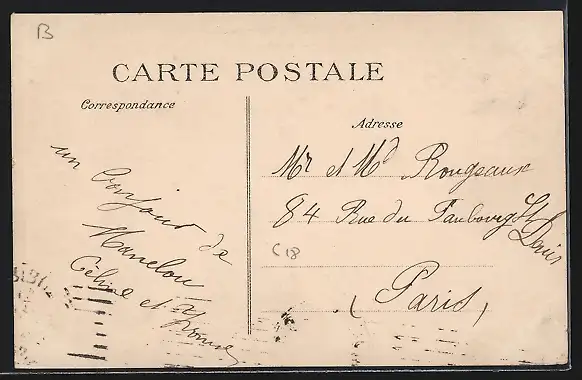 B
CARTE POSTALE
Correspondance
Adresse
un bonjour de
Manelou
Céline et Yvonne
Mr et Md Rougeaux
84 Rue du Faubourg St
Denis
C18
(Paris)